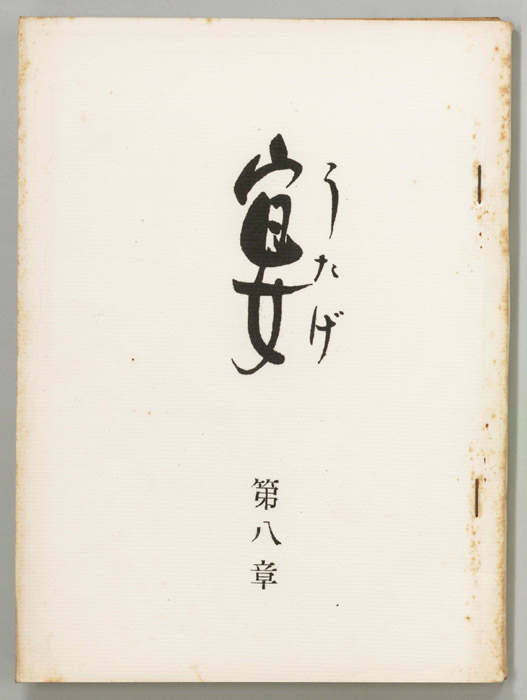 宴
うたげ
第八章